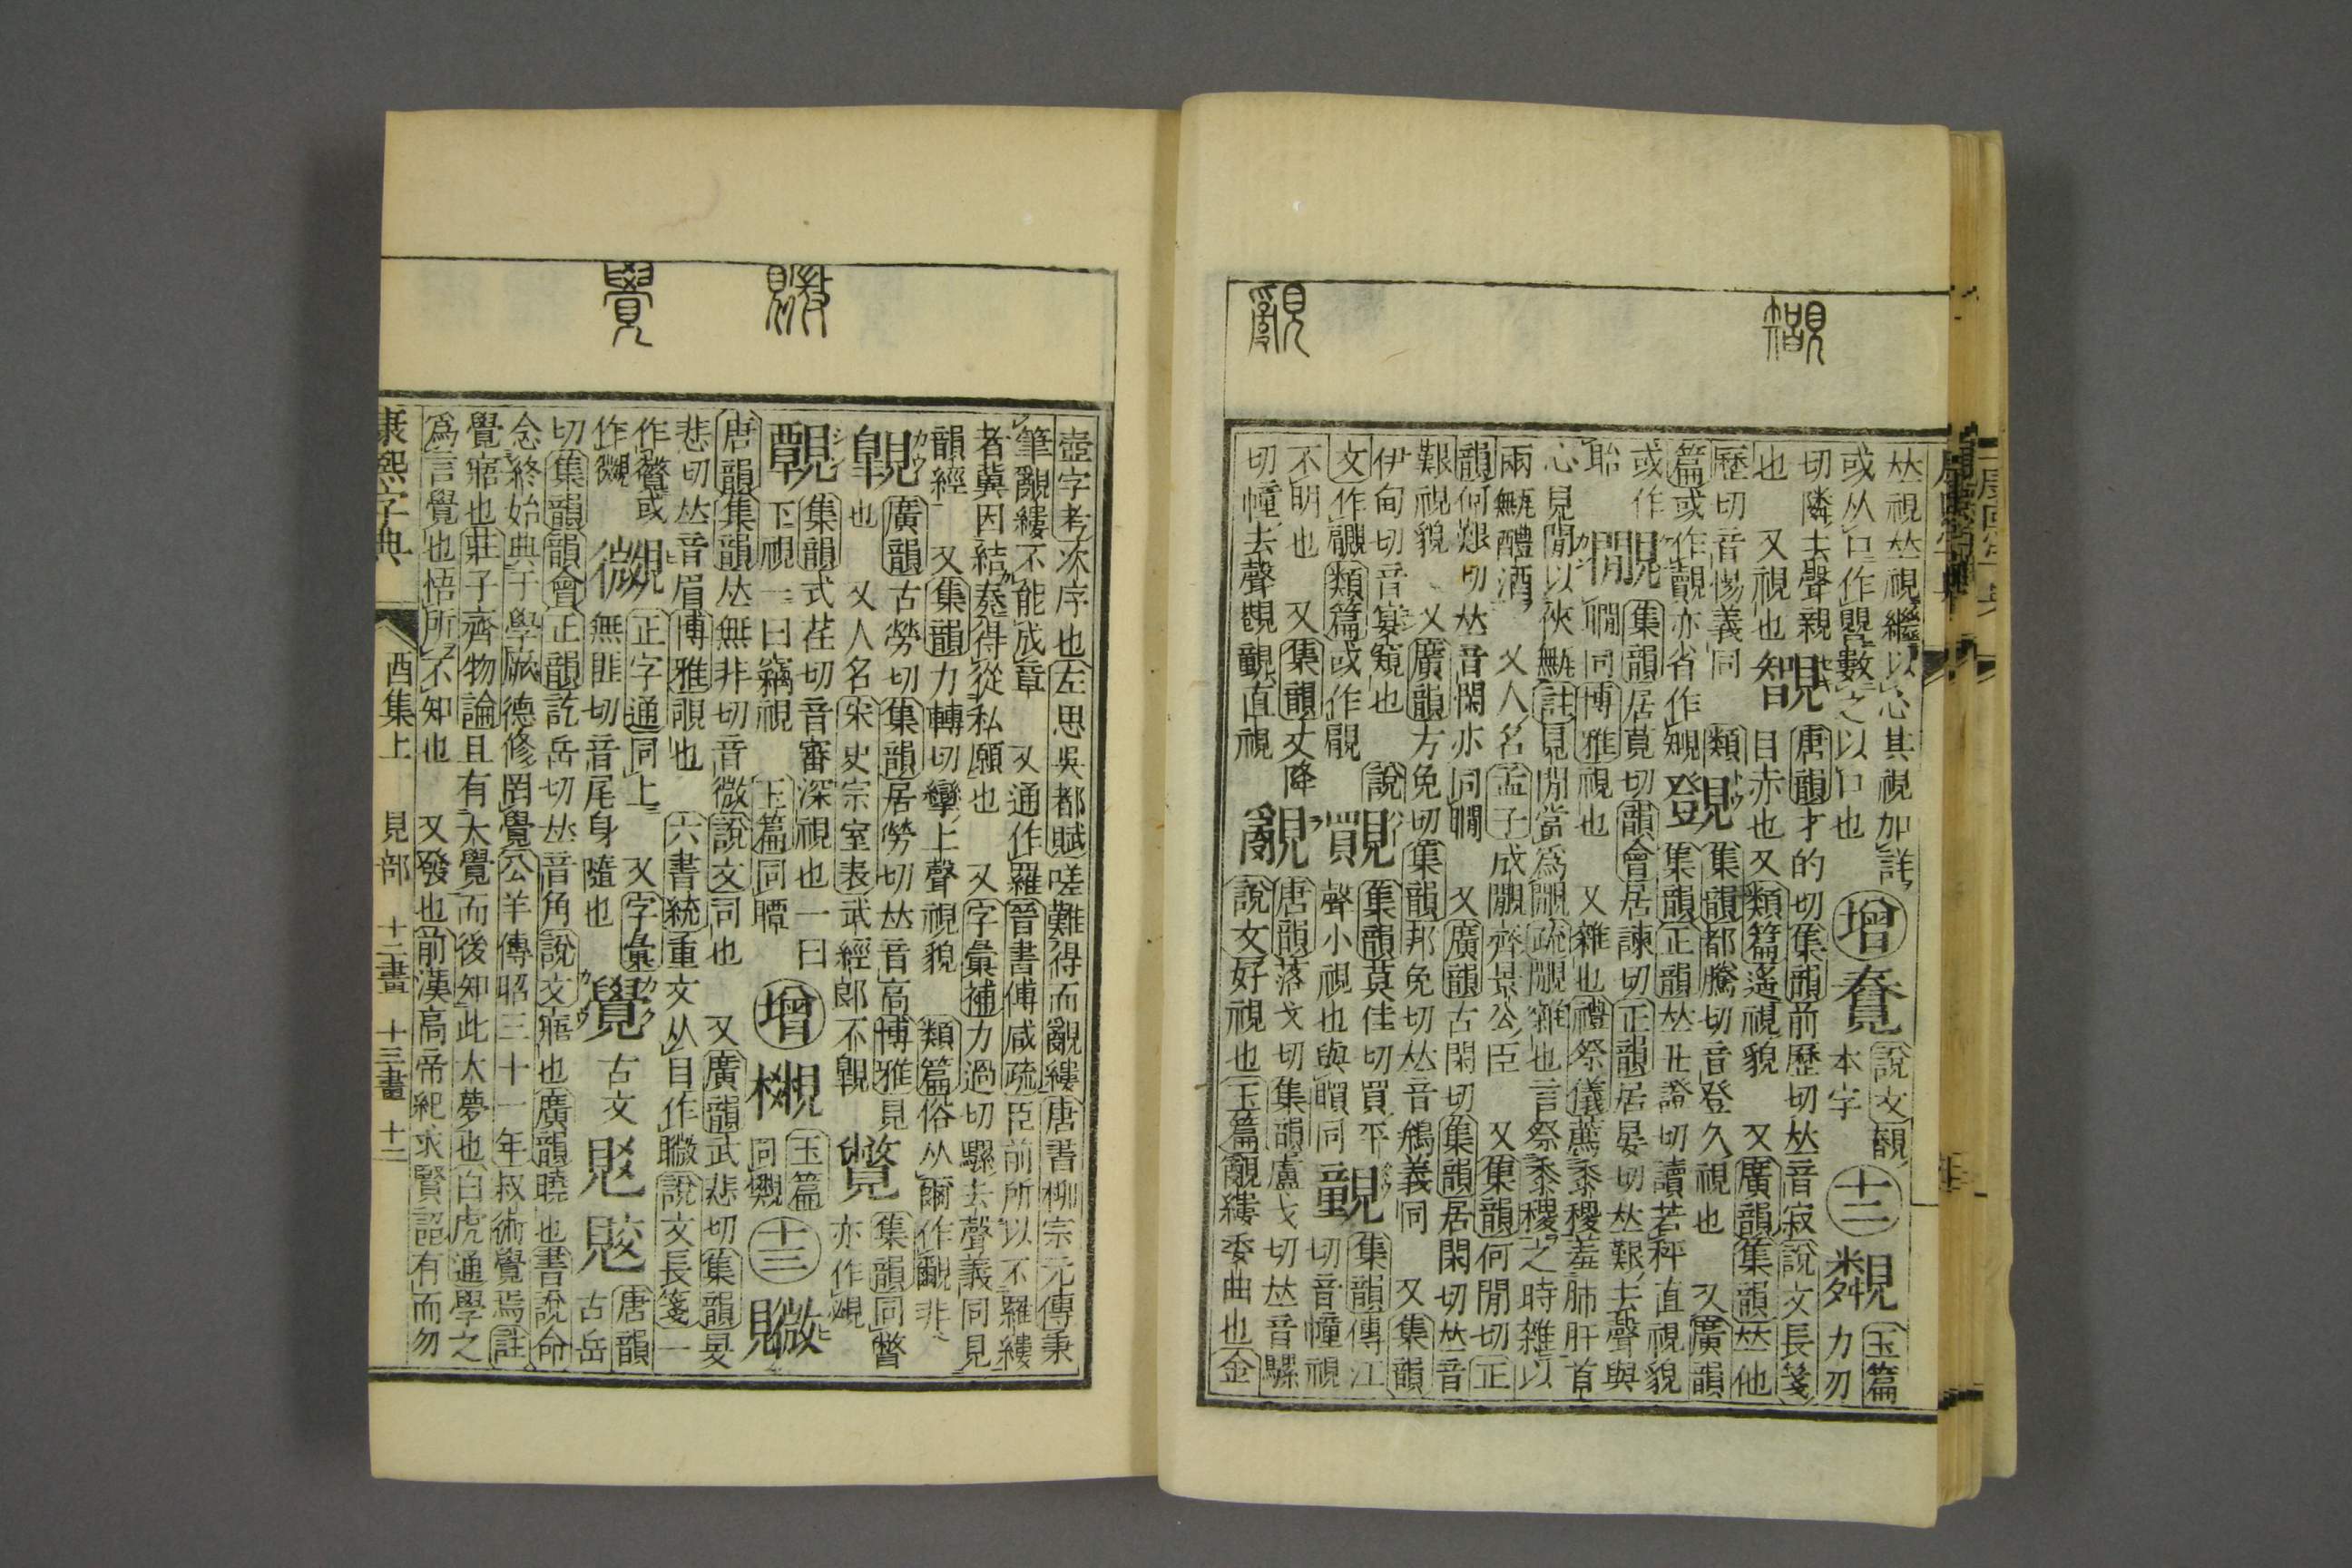 𠀤視𠀤視繼以心其視加詳
或从口作㗂數之以口也
切隣去聲親
也 又視也
歷切音惕義同
篇或作覿亦省作
或作
覵同博雅視也 又雜也禮祭儀薦黍稷羞肺肝首
心見閒以俠甒註見閒當爲覸疏覸雜也言祭黍稷之時雜以
兩甒醴酒 又人名孟子成覸齊景公臣 又集韻何閒切正
韻何艱切𠀤音閑亦同瞷 又廣韻古閑切集韻居閑切𠀤音
艱視貌 又廣韻方免切集韻邦免切𠀤音鴘義同 又集韻
伊甸切音宴窺也
說文作 類篇或作
不明也 又集韻丈降
切幢去聲覩覿直視
增 說文
本字
十二
玉篇
力刃
唐韻才的切集韻前歷切𠀤音寂說文長箋
目赤也又類篇遙視貌 又廣韻集韻𠀤他
類
覴
集韻都騰切音登久視也 又廣韻
集韻正韻𠀤丑證切讀若秤直視貌
覸
集韻居莧切韻會居諫切正韻居晏切𠀤艱去聲與
集韻莫佳切買平
聲小視也與瞤同
集韻傳江
切音幢視
覶
唐韻落戈切集韻盧戈切𠀤音騾
說文好視也玉篇覶縷委曲也金
壺字考次序也左思吳都賦嗟難得而覶縷唐書柳宗元傳秉
筆覶縷不能成章 又通作羅晉書傅咸疏臣前所以不羅縷
者冀因結奏得從私願也 又字彙補力過切騾去聲義同見
韻經 又集韻力轉切臠上聲視貌 類篇俗从爾作覼非
廣韻古勞切集韻居勞切𠀤音高博雅見
也 又人名宋史宗室表武經郎不
集韻同瞥
亦作
覾
集韻式荏切音審深視也一曰
下視一曰竊視 玉篇同瞫
增
玉篇
同
十三
覹
唐韻集韻𠀤無非切音微說文司也 又廣韻武悲切集韻旻
悲切𠀤音眉博雅覗也 六書統重文从目作䁲說文長箋一
作 或
作覹
正字通同上 又字彙
無匪切音尾身隨也
覺
古文
唐韻
古岳
切集韻韻會正韻訖岳切𠀤音角說文寤也廣韻曉也書說命
念終始典于學厥德修罔覺公羊傳昭三十一年叔術覺焉註
覺寤也莊子齊物論且有大覺而後知此大夢也白虎通學之
爲言覺也悟所不知也 又發也前漢高帝紀求賢詔有而勿
康熙字典
酉集上 見部 十二畫 十三畫 十二